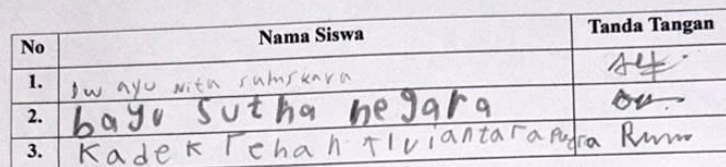 No Nama Siswa Tanda Tangan
1. Iw ayu Nita
2. bayu Sutha negara
3. Kadek Rehan Alviantara Putra